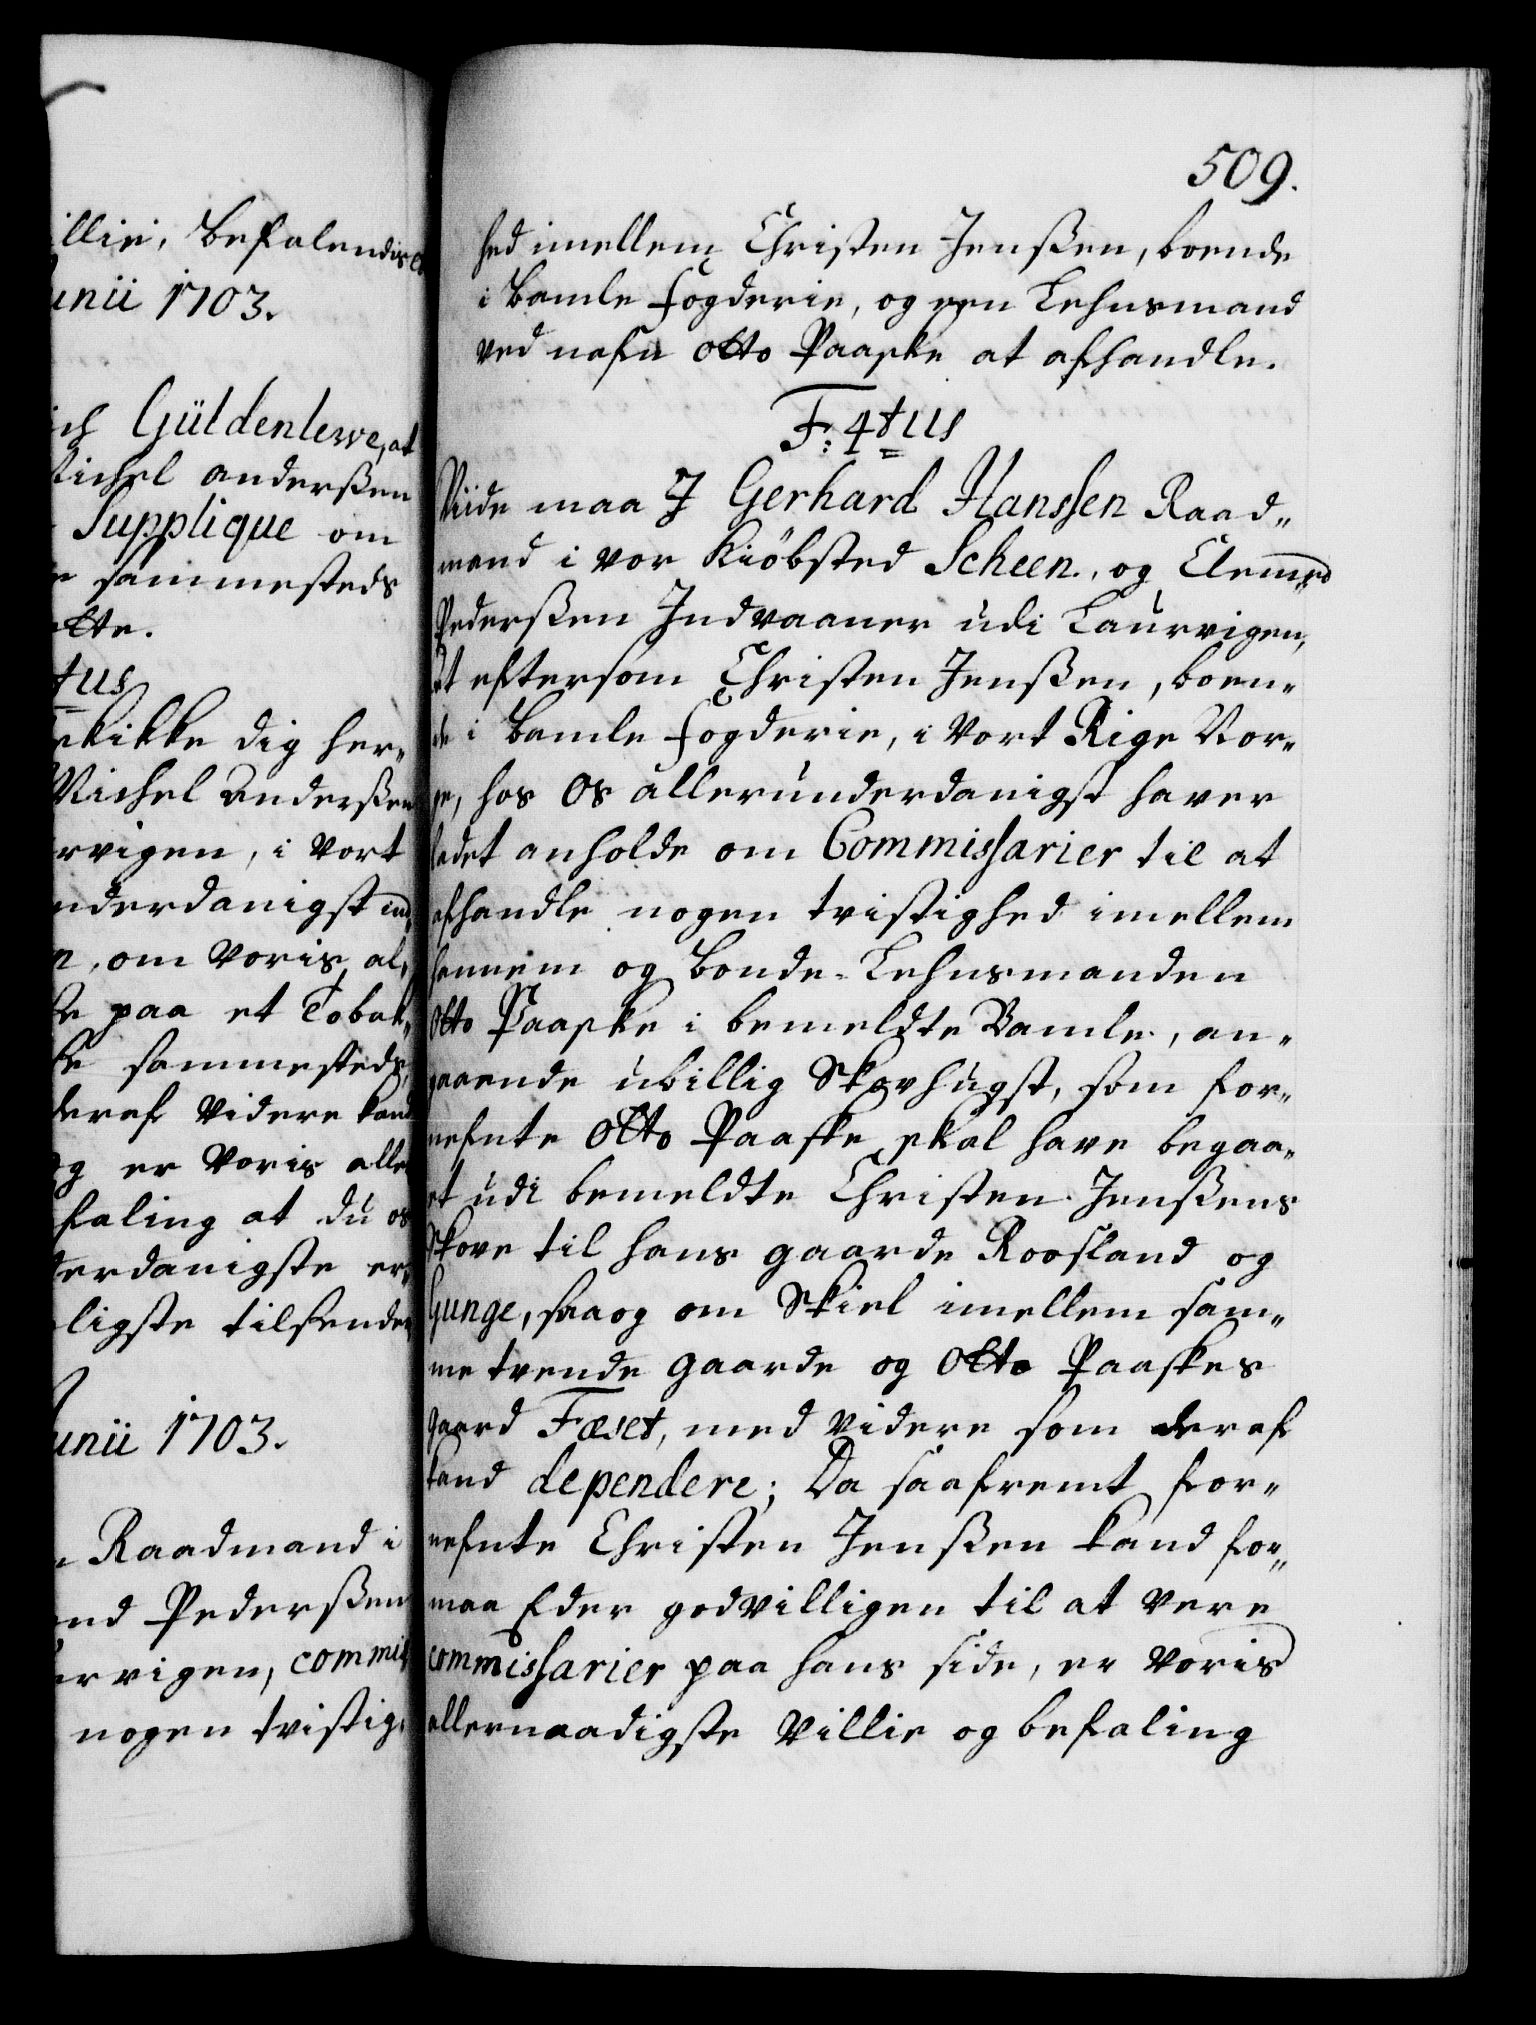 illie, Befalendis
unii 1703.
ich Güldenlewe, at
Michel anderßen
Supplique om
sammesteds
ette.
tus
skikke dig her„
Michel Anderßen
rvigen, i Vort
nderdanigst ind„
n, om Voris al„
paa et Tobak„
sammesteds,
deraf Videre kand
og er Voris alle„
faling at du os
derdanigste er„
ligste tilsender
unii 1703.
Raadmand i
end Pederßen
urvigen, commis„
nogen tvistig„
509.
hed imellem Christen Jenßen, boende
i Bamle fogderie, og een Lehnsmand
ved nafn Otto Paaske at afhandle.
F: 4tus
Viide maa J Gerhard Hanssen Raad„
mand i vor Kiöbsted Scheen, og Clemend
Pederßen Indvaaner udi Laurvigen,
At eftersom Christen Jenßen, boen„
de i Bamle fogderie, i Vort Rige Nor„
ge, hos Os allerunderdanigst haver
ladet anholde om Commissarier til at
afhandle nogen tvistighed imellem
hannem og Bonde-Lehnsmanden
Otto Paaske i bemeldte Bamle, an„
gaaende ubillig Skovhugst, som for„
nefnte Otto Paaske skal have begaa„
et udi bemeldte Christen Jenßens
Skove til hans gaarde Roosland og
Gunge, saa og om Skiel imellem sam„
me tvende gaarde og Otto Paaskes
gaard Fæset, med Videre som deraf
kand dependere; Da saafremt for„
nefnte Christen Jenßen kand for„
maa Eder godvilligen til at vere
commissarier paa hans side, er Voris
allernaadigste Villie og befaling